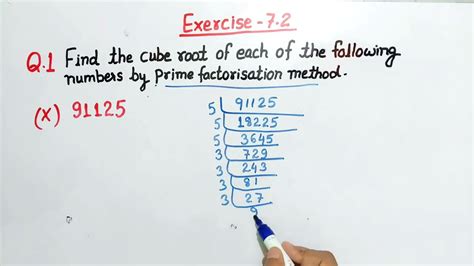 Exercise-7.2
Q.1 Find the cube root of each of the following
numbers by Prime factorisation method.
(X) 91125
5 91125
5 18225
5 3645
3 729
3 243
3 81
3 27
9